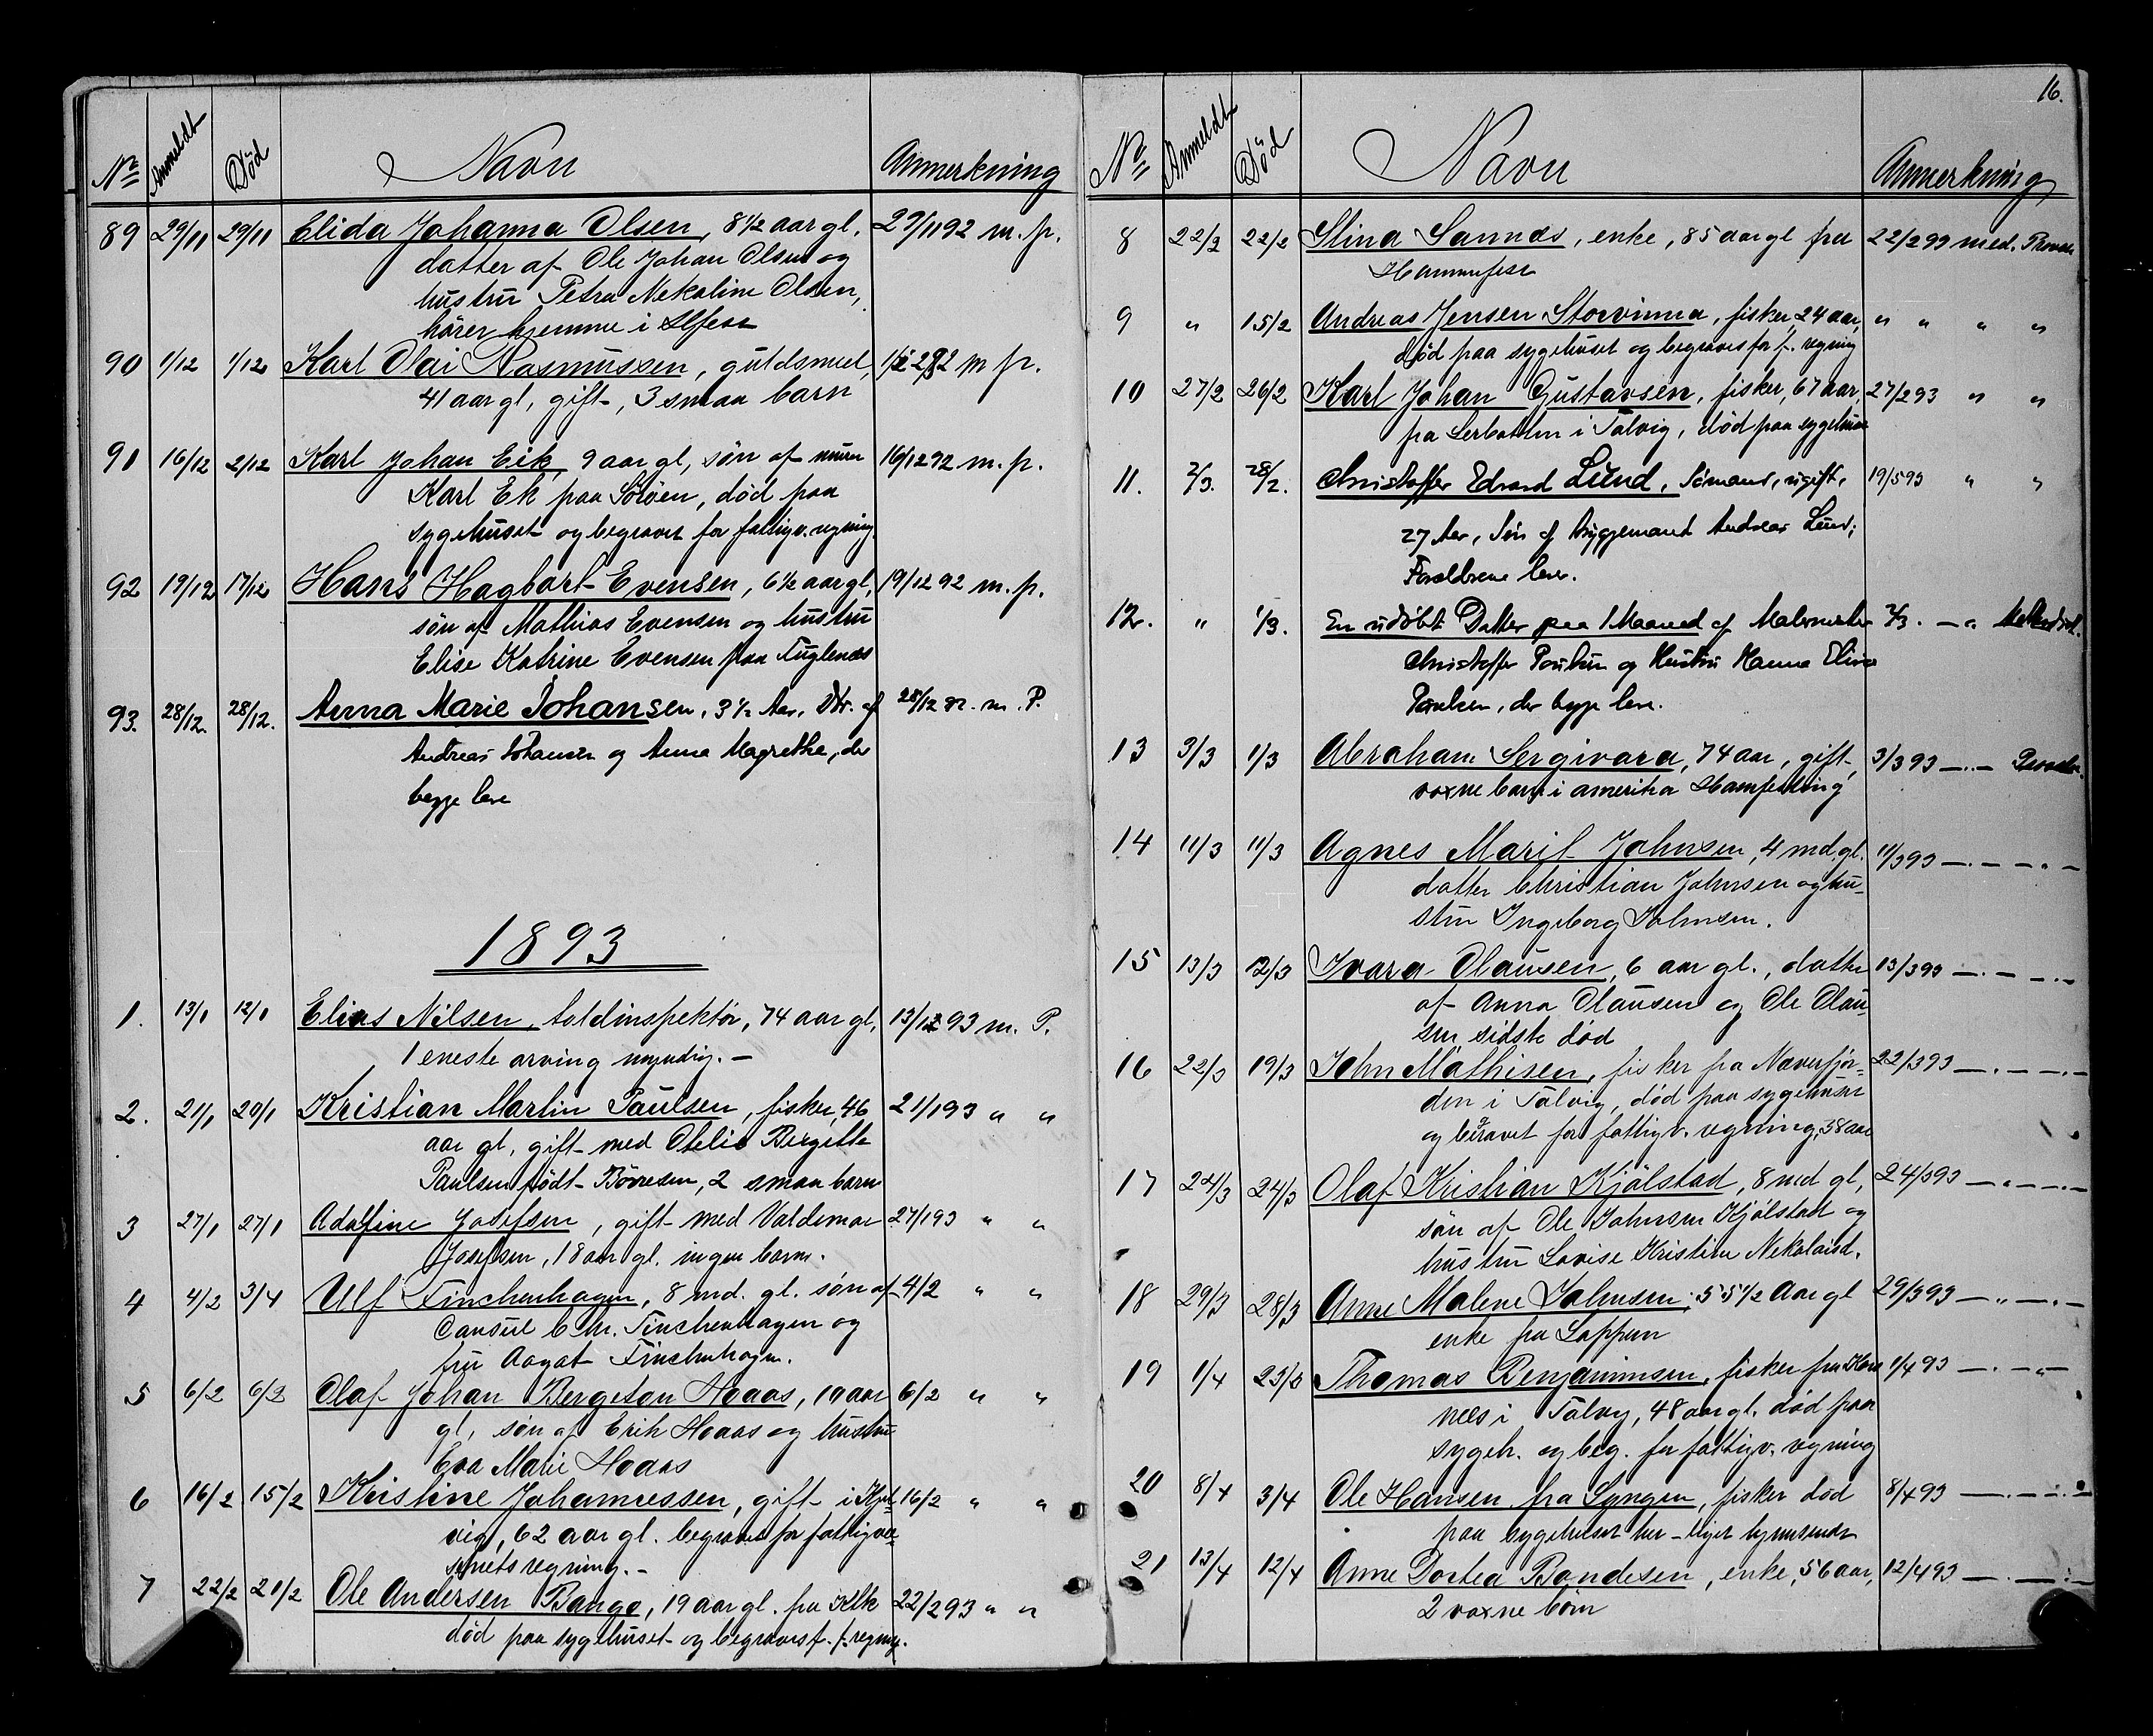 Nr. Anmeldt Död Navn Anmerkning
89 29/11 29/11 Elida Johanna Olsen, 8 1/2 aar gl. 29/11 92 m. p.
datter af Ole Johan Olsen og
hustru Petra Nekoline Olsen,
hörer hjemme i Hfest
90 1/12 1/12 Karl Olai Rasmussen, guldsmed, 1/12 92 m p.
41 aar gl, gift, 3 smaa barn
91 16/12 2/12 Karl Johan Eik, 9 aar gl, sön af murer 16/12 92 m. p.
Karl Ek paa Söröen, död paa
sygehuset og begravet for fattigv. regning.
92 19/12 17/12 Hans Hagbart Evensen, 6 1/2 aar gl, 19/12 92 m. p.
sön af Mathias Evensen og hustru
Elise Katrine Evensen paa Fuglenæs
93. 28/12. 28/12. Anna Marie Johansen, 3 1/2 Aar, Dtr. af 28/12 92. m. P.
Andreas Johansen og Anna Magrethe, der
begge leve
1893
1. 13/1 12/1 Elias Nilsen, toldinspektör, 74 aar gl, 13/1 93 m. P.
1 eneste arving myndig. -
2. 21/1 20/1 Kristian Martin Paulsen, fisker, 46 21/1 93 " "
aar gl, gift med Otelie Birgitte
Paulsen födt Börresen, 2 smaa barn
3 27/1 27/1 Adolfine Josefsen, gift med Valdemar 27/1 93 " "
Josefsen, 18 aar gl. ingen barn.
4 4/2 3/4 Ulf Finchenhagen, 8 md. gl. sön af 4/2 " "
Consul Chr. Finchenhagen og
fru Aagot Finchenhagen.
5 6/2 6/2 Olaf Johan Bergeton Hoaas, 10 aar 6/2 " "
gl, sön af Erik Hoaas og hustru
Eva Marie Hoaas
6 16/2 15/2 Kristine Johannessen, gift i Kjel- 16/2 " "
vig, 62 aar gl. begravet for fattigvæ-
senets regning. -
7 22/2 20/2 Ole Andersen Bange, 19 aar gl. fra 22/2 93 " "
död paa sygehuset og begraves f. f. regning.
16.
Nr. Anmeldt Död Navn Anmerkning
8 22/2 22/2 Stina Sannæs, enke, 85 aar gl fra 22/2 93 med. Provst
Hammerfest
9 " 15/2 Andreas Jensen Storvinna, fisker, 24 aar, " " " "
död paa sygehuset og begraves for f. regning
10 27/2 26/2 Karl Johan Gustavsen, fisker, 67 aar, 27/2 93 " "
fra i Talvig, död paa sygehuset
11. 2/3. 28/2. Christoffer Edvard Lund, Sömand, ugift, 19/5 93 " "
27 Aar, Sön af Byggemand Andreas Lund;
Forældrene leve.
12. " 1/3. En udöbt Datter paa 1 Maaned af Malermester 2/3. - "
Christoffer Poulsen og Hustru Hanna Elina
Poulsen, der begge leve.
13 3/3 1/3 Abraham Sergivara, 74 aar, gift, 3/3 93 -.-
voxne barn i amerika Hamfesting
14 11/3 11/3 Agnes Marit Johnsen, 4 md. gl. 11/3 93 -.- -.-
datter Christian Johnsen og hu-
stru Ingeborg Johnsen.
15 13/3 12/3 Ivara Olausen, 6 aar gl., datter 13/3 93 -.- -.-
af Anna Olausen og Ole Olau-
sen, sidste död
16 22/3 19/3 John Mathisen, fisker fra Naverfjor- 22/3 93 -.- -.-
den i Talvig, död paa sygehuset
og beravet for fattigv. regning, 38 aar
17 24/3 24/3 Olaf Kristian Kjölstad, 8 md gl, 24/3 93 -.- -.-
sön af Ole Johnsen Kjölstad og
hustru Lovise Kristine Nekolaisd.
18 29/3 28/3 Anne Malene Johnsen, 55 1/2 Aar gl 29/3 93 -"- -.-
enke fra Loppen
19 1/4 23/3 Thomas Benjaminsen, fisker fra Kors 1/4 93 -.- "-
næs i Talvig, 48 aar gl. död paa
sygeh. og beg. for fattigv. regning
20 8/4 3/4 Ole Hansen fra Lyngen, fisker död 8/4 93 -.- -.-
paa sygehuset her - liget hjemsendt
21 13/4 12/4 Anne Dortea Bendesen, enke, 56 aar, 12/4 93 -.- -.-
2 voxne börn